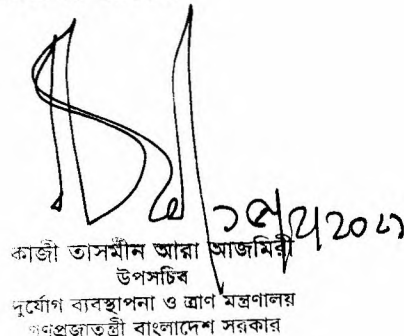 কাজী তাসমীন আরা আজমিরী
উপসচিব
দুর্যোগ ব্যবস্থাপনা ও ত্রাণ মন্ত্রণালয়
গণপ্রজাতন্ত্রী বাংলাদেশ সরকার